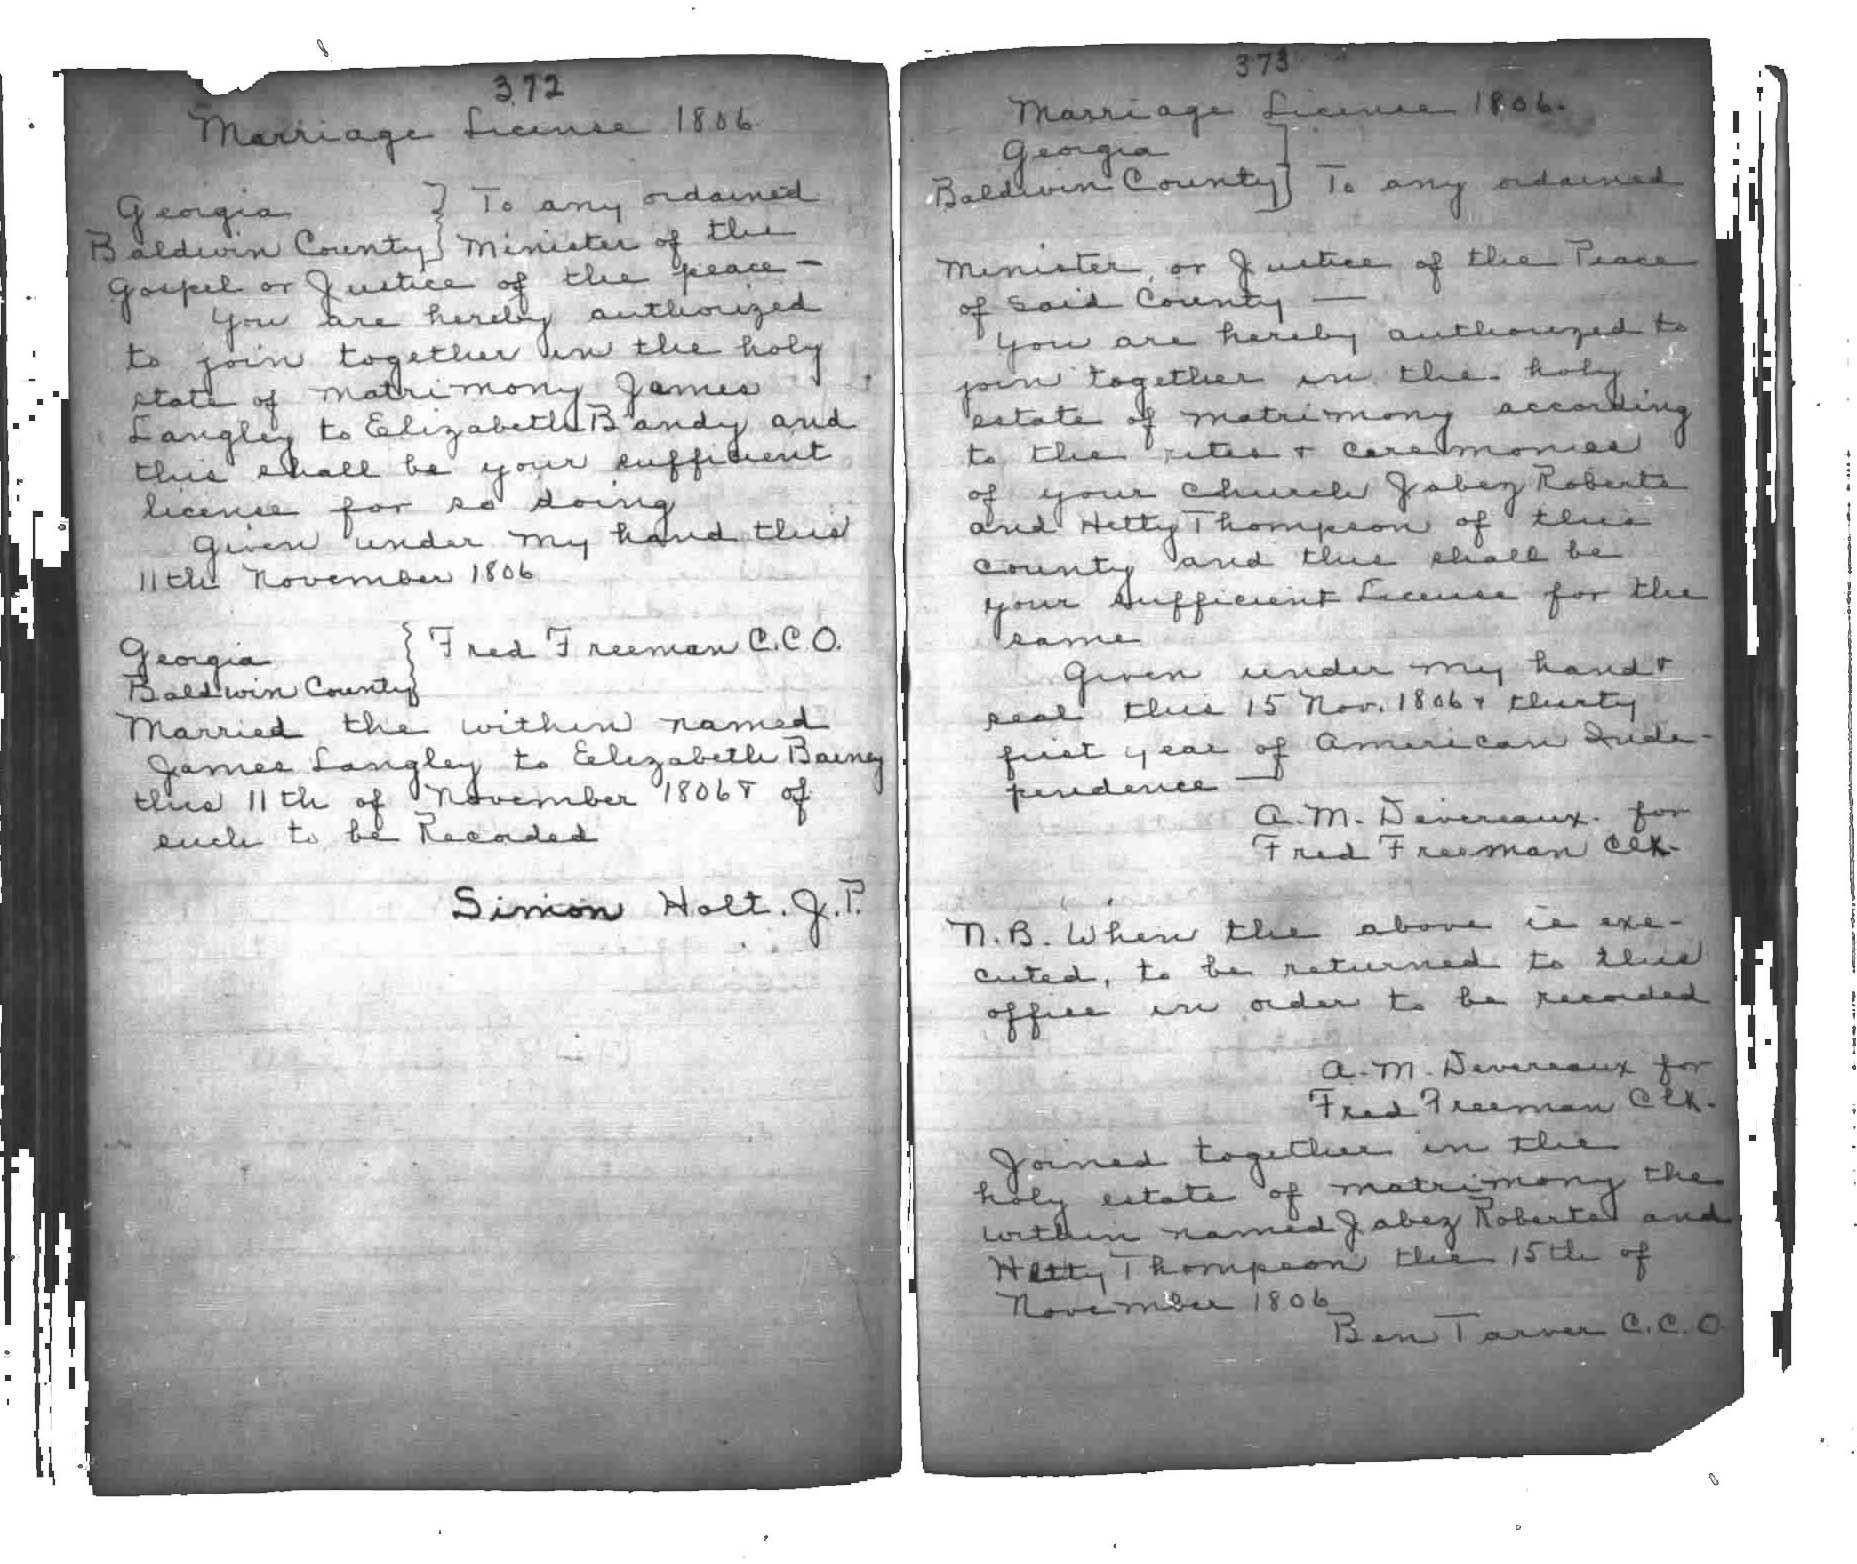 372
Marriage License 1806
Georgia } To any ordained
Baldwin County } Minister of the
Gospel or Justice of the peace —
You are hereby authorized
to join together in the holy
state of matrimony James
Langley to Elizabeth Bandy and
this shall be your sufficient
license for so doing
Given under my hand this
11th November 1806
Georgia } Fred Freeman C.C.O.
Baldwin County }
Married the within named
James Langley to Elizabeth
this 11th of November 1806 & of
such to be Recorded
Simon Holt. J.P.
373
Marriage License 1806.
Georgia
Baldwin County } To any ordained
Minister, or Justice of the Peace
of said County —
You are hereby authorized to
join together in the holy
estate of matrimony according
to the rites & ceremonies
of your church Jabez Roberts
and Hetty Thompson of this
County and this shall be
your sufficient License for the
same
Given under my hand &
seal this 15 Nov. 1806 & thirty
first year of American Inde-
pendence —
A. M. Devereaux. for
Fred Freeman Clk.
N.B. When the above is exe-
cuted, to be returned to this
office in order to be recorded
A. M. Devereaux for
Fred Freeman Clk.
Joined together in the
holy estate of matrimony the
within named Jabez Roberts and
Hetty Thompson this 15th of
November 1806
Ben Tarver C.C.O